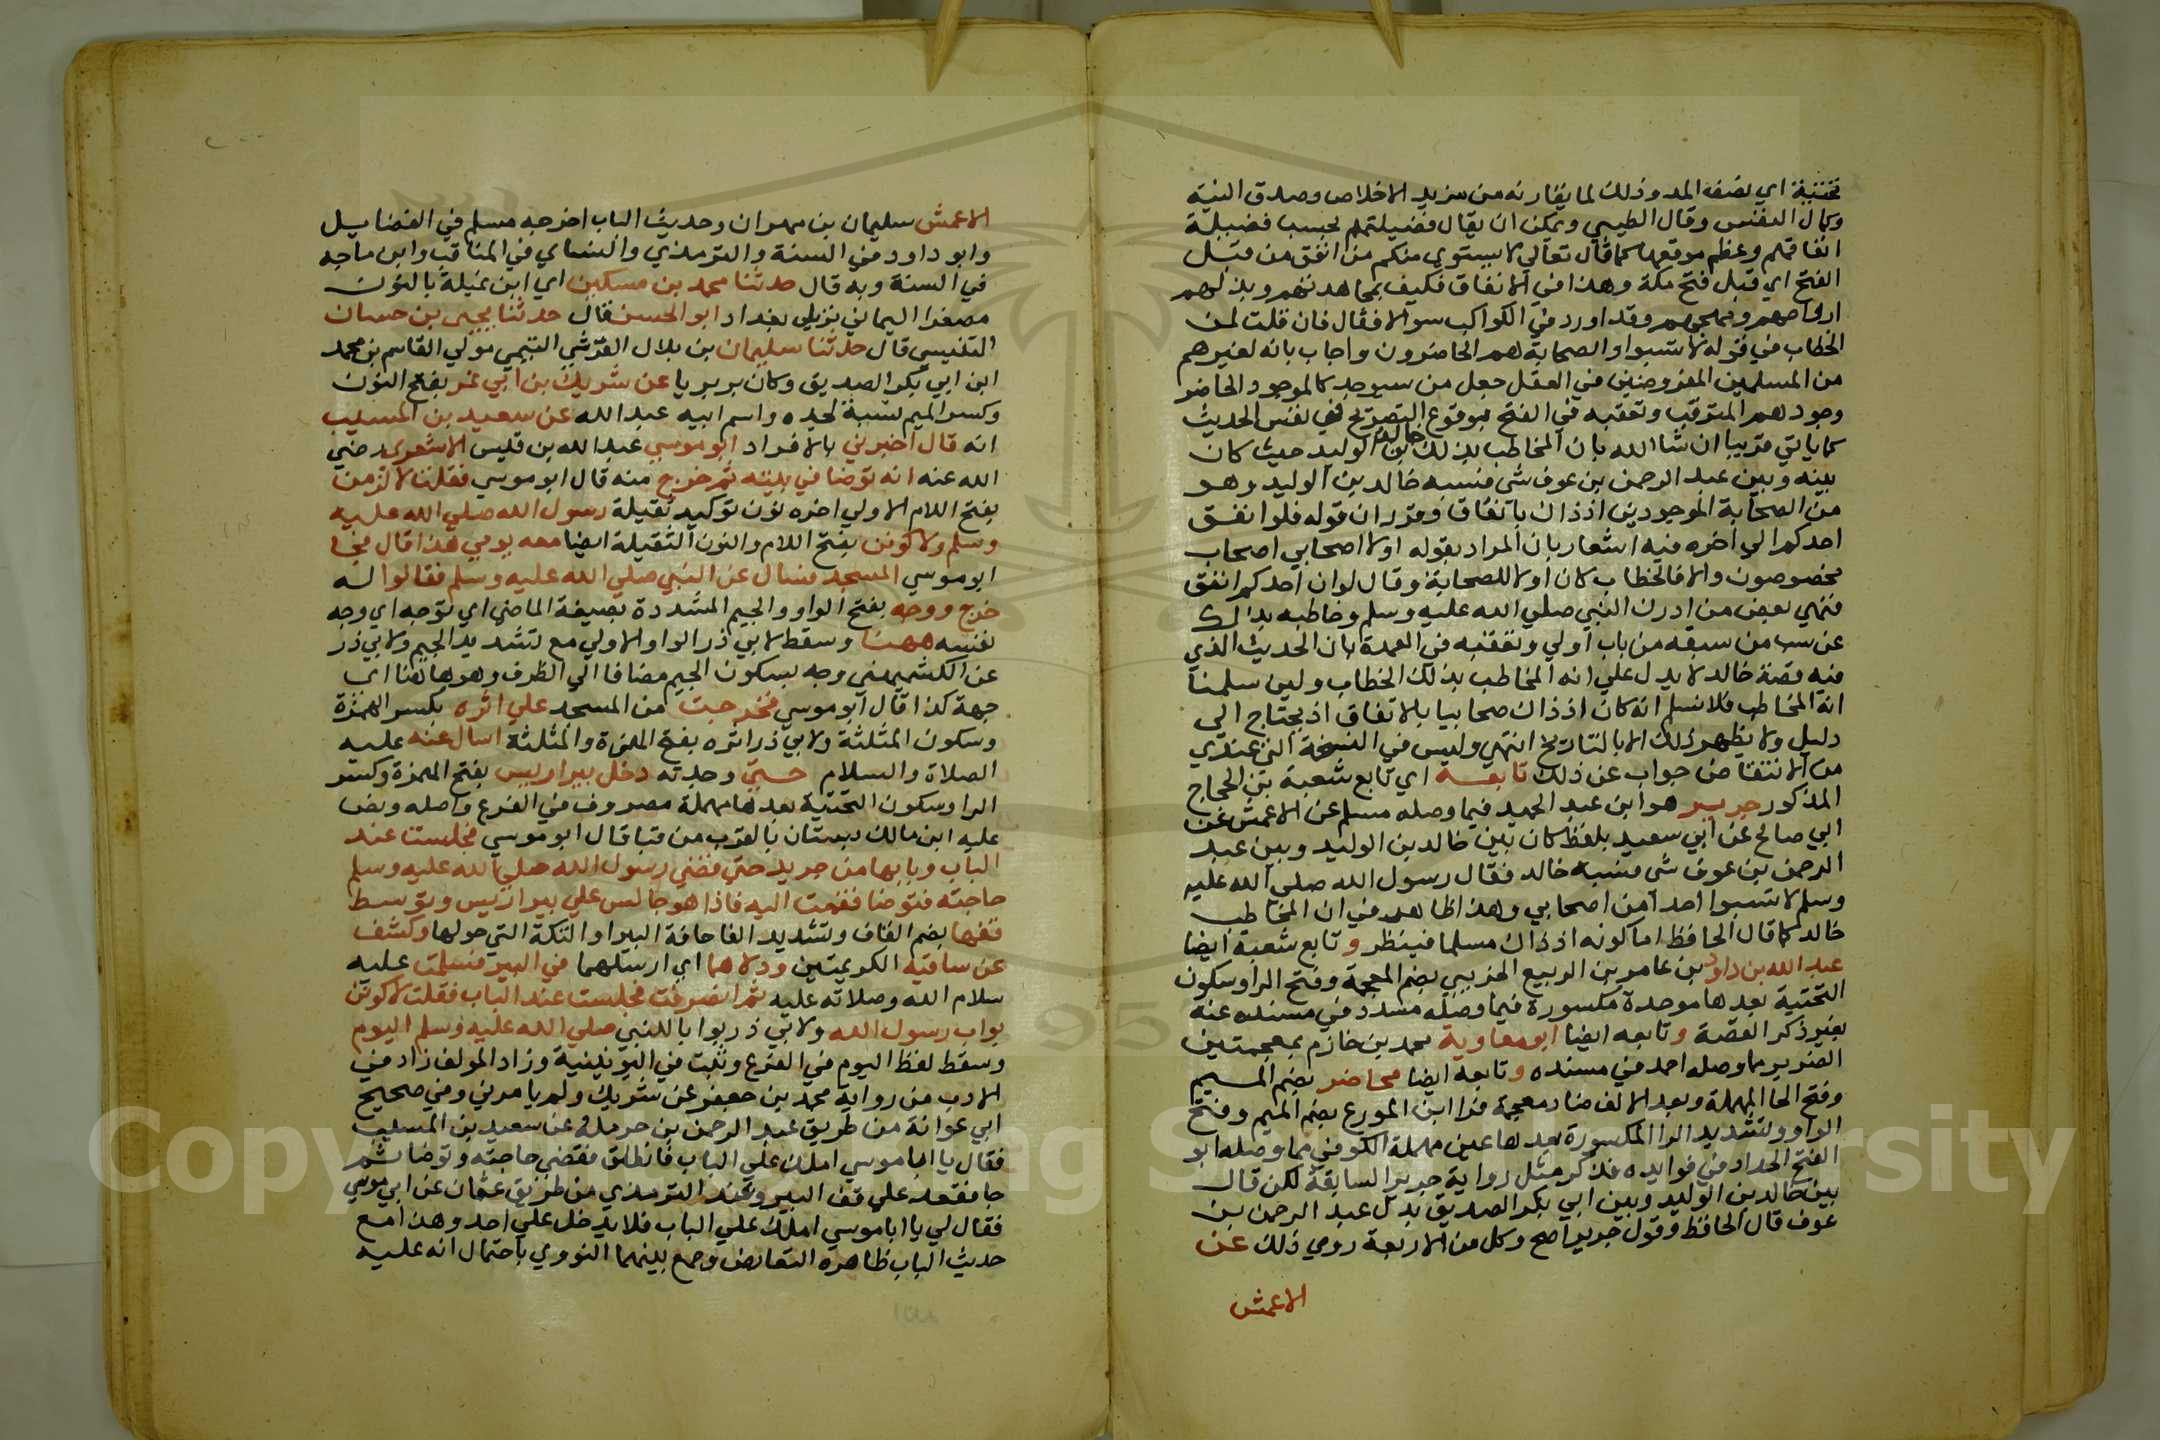 تحتية اي نصفه المد وذلك لما يقارنه من مزيد الاخلاص وصدق النية
وكمال النفس وقال الطيبي ويمكن ان يقال فضيلتهم بحسب فضيلة
انفاقهم وعظم موقعها كما قال تعالي لا يستوي منكم من انفق من قبل
الفتح اي قبل فتح مكة وهذا في الانفاق فكيف بمجاهدتهم وبذلهم
ارواحهم ومهجهم وقد اورد في الكواكب سوالا فقال فان قلت لمن
الخطاب في قوله لا تسبوا والصحابة هم الحاضرون واجاب بانه لغيرهم
من المسلمين المفروضين في العقل جعل من سيوجد كالموجود الحاضر
وجودهم المترقب وتعقبه في الفتح بوقوع التصريح في نفس الحديث
كما ياتي قريبا ان شا الله بان المخاطب بذلك خالد بن الوليد حيث كان
بينه وبين عبد الرحمن بن عوف شي فسبه خالد بن الوليد وهو
من الصحابة الموجودين اذ ذاك باتفاق وقرر ان قوله فلو انفق
احدكم الي اخره فيه اشعار بان المراد بقوله اولا اصحابي اصحاب
مخصوصون والا فالخطاب كان اولا للصحابة وقال لو ان احدكم انفق
فنهي بعض من ادرك النبي صلي الله عليه وسلم وخاطبه بذلك
عن سب من سبقه من باب اولي وتعقبه في العمدة بان الحديث الذي
فيه قصة خالد لا يدل علي انه المخاطب بذلك الخطاب ولين سلمنا
انه المخاطب فلا نسلم انه كان اذ ذاك صحابيا بالاتفاق اذ يحتاج الي
دليل ولا يظهر ذلك الا بالتاريخ انتهي وليس في النسخة التي عندي
من الانتقاض جواب عن ذلك تابعه اي تابع شعبة بن الحجاج
المذكور جرير هو ابن عبد الحميد فيما وصله مسلم عن الاعمش عن
ابي صالح عن ابي سعيد بلفظ كان بين خالد بن الوليد وبين عبد
الرحمن بن عوف شي فسبه خالد فقال رسول الله صلي الله عليه
وسلم لا تسبوا احدا من اصحابي وهذا ظاهر في ان المخاطب
خالد كما قال الحافظ اما كونه اذ ذاك مسلما فينظر و تابع شعبة ايضا
عبد الله بن داود بن عامر بن الربيع الخريبي بضم المعجمة وفتح الرا وسكون
التحتية بعدها موحدة مكسورة فيما وصله مسدد في مسنده عنه
بغير ذكر القصة و تابعه ايضا ابو معاوية محمد بن خازم بمعجمتين
الضرير مما وصله احمد في مسنده و تابعه ايضا محاضر بضم الميم
وفتح الحا المهملة وبعد الالف ضاد معجمة فرا ابن المورع بضم الميم وفتح
الواو وتشديد الرا المكسورة بعدها عين مهملة الكوفي مما وصله ابو
الفتح الحداد في فوايده فذكر مثل رواية جرير السابقة لكن قال
بين خالد بن الوليد وبين ابي بكر الصديق بدل عبد الرحمن بن
عوف قال الحافظ وقول جرير اصح وكل من الاربعة روي ذلك عن
الاعمش
الاعمش سليمان بن مهران وحديث الباب اخرجه مسلم في الفضايل
وابو داود في السنة والترمذي والنساي في المناقب وابن ماجه
في السنة وبه قال حدثنا محمد بن مسكين اي ابن نميلة بالنون
مصغرا اليماني نزيل بغداد ابو الحسن قال حدثنا يحيى بن حسان
التنيسي قال حدثنا سليمان بن بلال القرشي التيمي مولي القاسم بن محمد
ابن ابي بكر الصديق وكان بربريا عن شريك بن ابي نمر بفتح النون
وكسر الميم نسبة لجده واسم ابيه عبد الله عن سعيد بن المسيب
انه قال اخبرني بالافراد ابو موسي عبد الله بن قيس الاشعري رضي
الله عنه انه توضا في بيته ثم خرج منه قال ابو موسي فقلت لالزمن
بفتح اللام الاولي اخره نون توكيد ثقيلة رسول الله صلي الله عليه
وسلم ولاكونن بفتح اللام والنون الثقيلة ايضا معه يومي هذا قال فجا
ابو موسي المسجد فسال عن النبي صلي الله عليه وسلم فقالوا له
خرج ووجه بفتح الواو والجيم المشددة بصيغة الماضي اي توجه اي وجه
نفسه ههنا وسقط لابي ذر الواو الاولي مع تشديد الجيم ولابي ذر
عن الكشميهني وجه بسكون الجيم مضافا الي الظرف وهو هاهنا اي
جهة كذا قال ابو موسي فخرجت من المسجد علي اثره بكسر الهمزة
وسكون المثلثة ولابي ذر اثره بفتح الهمزة والمثلثة اسال عنه عليه
الصلاة والسلام حتي وجدته دخل بير اريس بفتح الهمزة وكسر
الرا وسكون التحتية بعدها مهملة مصروف في الفرع واصله ونص
عليه ابن مالك بستان بالقرب من قبا قال ابو موسي فجلست عند
الباب وبابها من جريد حتي قضي رسول الله صلي الله عليه وسلم
حاجته فتوضا فقمت اليه فاذا هو جالس علي بير اريس وتوسط
قفها بضم القاف وتشديد الفا حافة البير او الدكة التي حولها وكشف
عن ساقيه الكريمتين ودلاهما اي ارسلهما في البير فسلمت عليه
سلام الله وصلاته عليه ثم انصرفت فجلست عند الباب فقلت لاكونن
بواب رسول الله ولابي ذر بوابا للنبي صلي الله عليه وسلم اليوم
وسقط لفظ اليوم في الفرع وثبت في اليونينية وزاد المولف زاد في
الادب من رواية محمد بن جعفر عن شريك ولم يامرني وفي صحيح
ابي عوانة من طريق عبد الرحمن بن حرملة عن سعيد بن المسيب
فقال يا ابا موسي املك علي الباب فانطلق فقضي حاجته وتوضا ثم
جا فقعد علي قف البير وعند الترمذي من طريق عثمان عن ابي موسي
فقال لي يا ابا موسي املك علي الباب فلا يدخل علي احد وهذا مع
حديث الباب ظاهره التعارض وجمع بينهما النووي باحتمال انه عليه